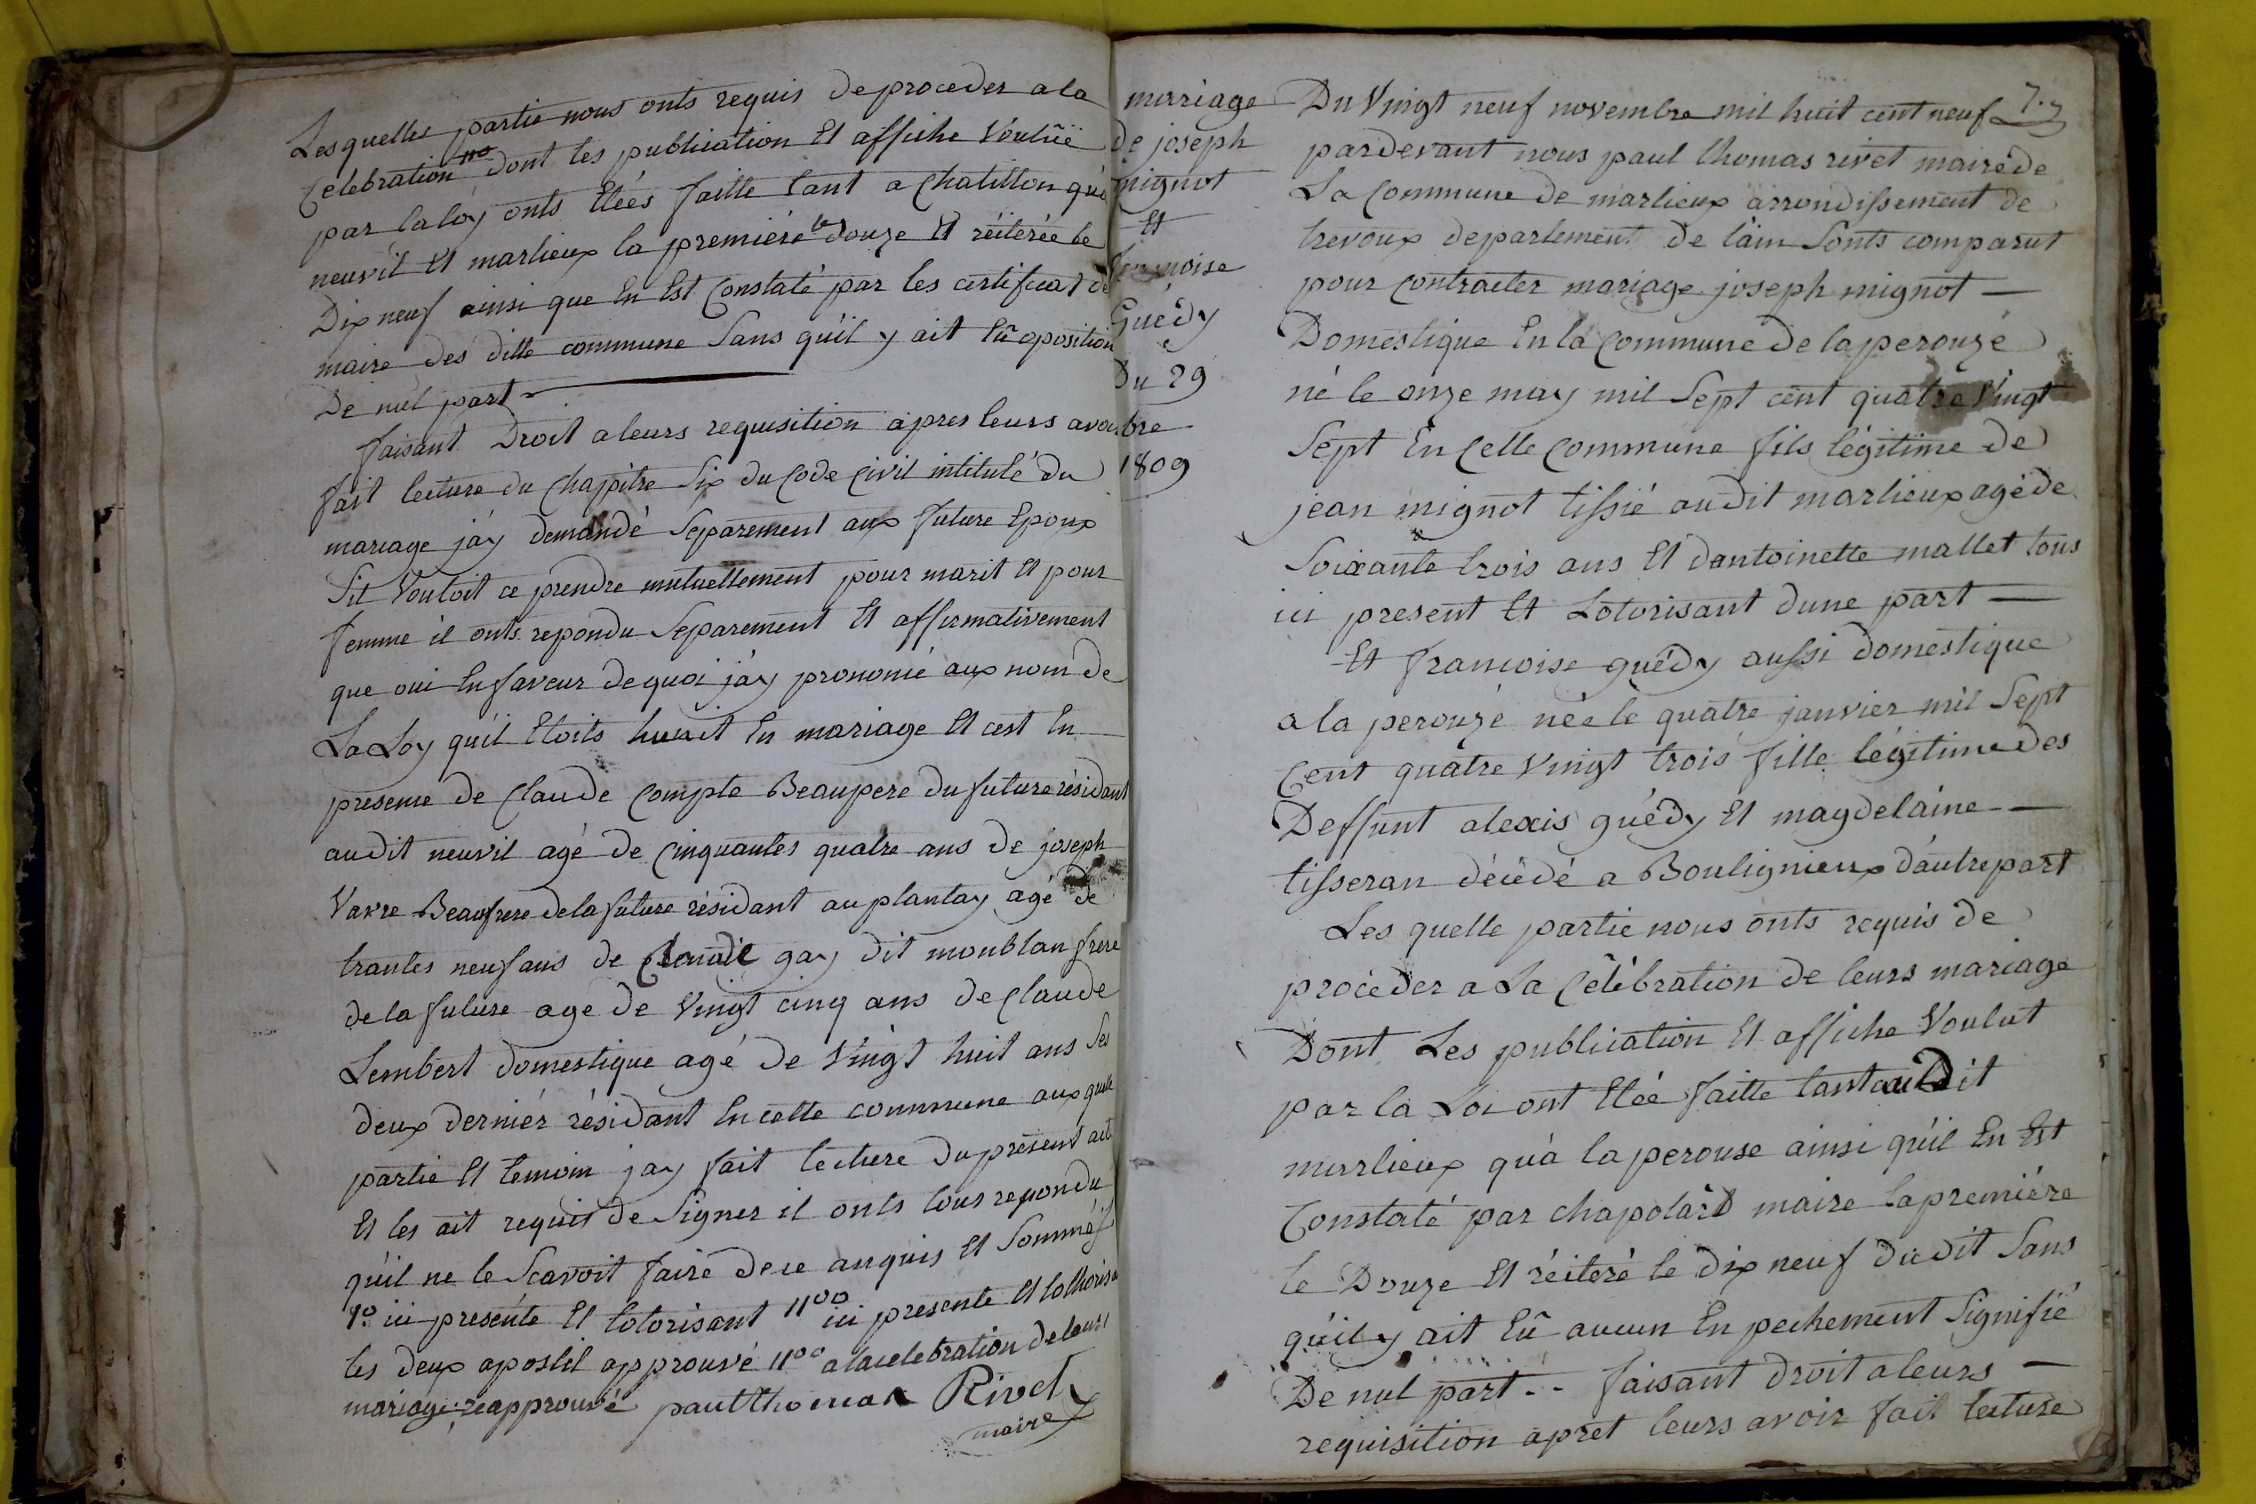 Lesquelles partie nous onts requis de proceder a la
Celebration dont les publication Et affiche Voulüe
par la loy onts Etées faitte tant a Chatillon qu'a
neuvil Et marlieux la premiére le douze Et réiterée le
Dix neuf ainsi que En Est Constaté par les certificat de
maire des ditte commune Sans qu'il y ait Eû oposition
De nul part
faisant Droit a leurs requisition apres leurs avoir
fait lecture du Chapitre Six du Code Civil intitulé du
mariage j'ay demandé Separement aux future Epoux
Sil Vouloit ce prendre mutuellement pour marit Et pour
femme il onts repondu Separement Et affirmativement
que oui En faveur de quoi j'ay prononcé aux nom de
La Loy qu'il Etoits hunit En mariage Et cest En
presence de Claude Compte Beaupere du future résidant
audit neuvil agé de Cinquantes quatre ans de joseph
Vavre Beaufrere de la future résidant au plantay agé de
trantes neuf ans de Claude gay dit moublan frere
de la future age de Vingt cinq ans de Claude
Lembert domestique agé de Vingt huit ans Les
deux derniér résidant En cette commune aux quelle
partie Et temoin jay fait lecture du present acte
Et les ait requis de Signer il onts tous repondu
qu'il ne le Scavoit faire de ce anquis Et Sommé
1º ici presente Et lotorisant 11ºº ici presente Et lothorisa
les deux apostil approuvé 11ºº a la celebration de leurs
mariage reapprouvé paul Thomas Rivet
maire
mariage
de joseph
mignot
Et
françoise
Guédy
Du 29
bre
1809
7.
Du Vingt neuf novembre mil huit cent neuf
pardevant nous paul thomas rivet maire de
La Commune de marlieux arrondissement de
trevoux departement de l'ain Sonts comparut
pour contracter mariage joseph mignot
Domestique En la commune de la perouze
né le onze may mil Sept cent quatre Vingt
Sept En Cette Commune fils légitime de
jean mignot tissié audit marlieux agé de
Soixante trois ans Et dantoinette mallet tous
ici present Et Lotorisant dune part
Et francoise guédy aussi domestique
a la perouze née le quatre janvier mil Sept
Cent quatre Vingt trois fille légitime des
Deffunt alexis guédy Et magdelaine
tisseran décédé a Boulignieux d'autre part
Les quelle partie nous onts requis de
procéder a La Célébration de leurs mariage
Dont Les publication Et affiche Voulut
par la Loi ont Etéé faitte tant audit
marlieux qu'à la perouse ainsi qu'il En Est
Constaté par chapolard maire la premiére
le Douze Et réiteré le dix neuf dudit Sans
qu'il y ait Eû aucun En pechement Signifié
De nul part -- faisant droit a leurs
requisition apret leurs avoir fait lecture